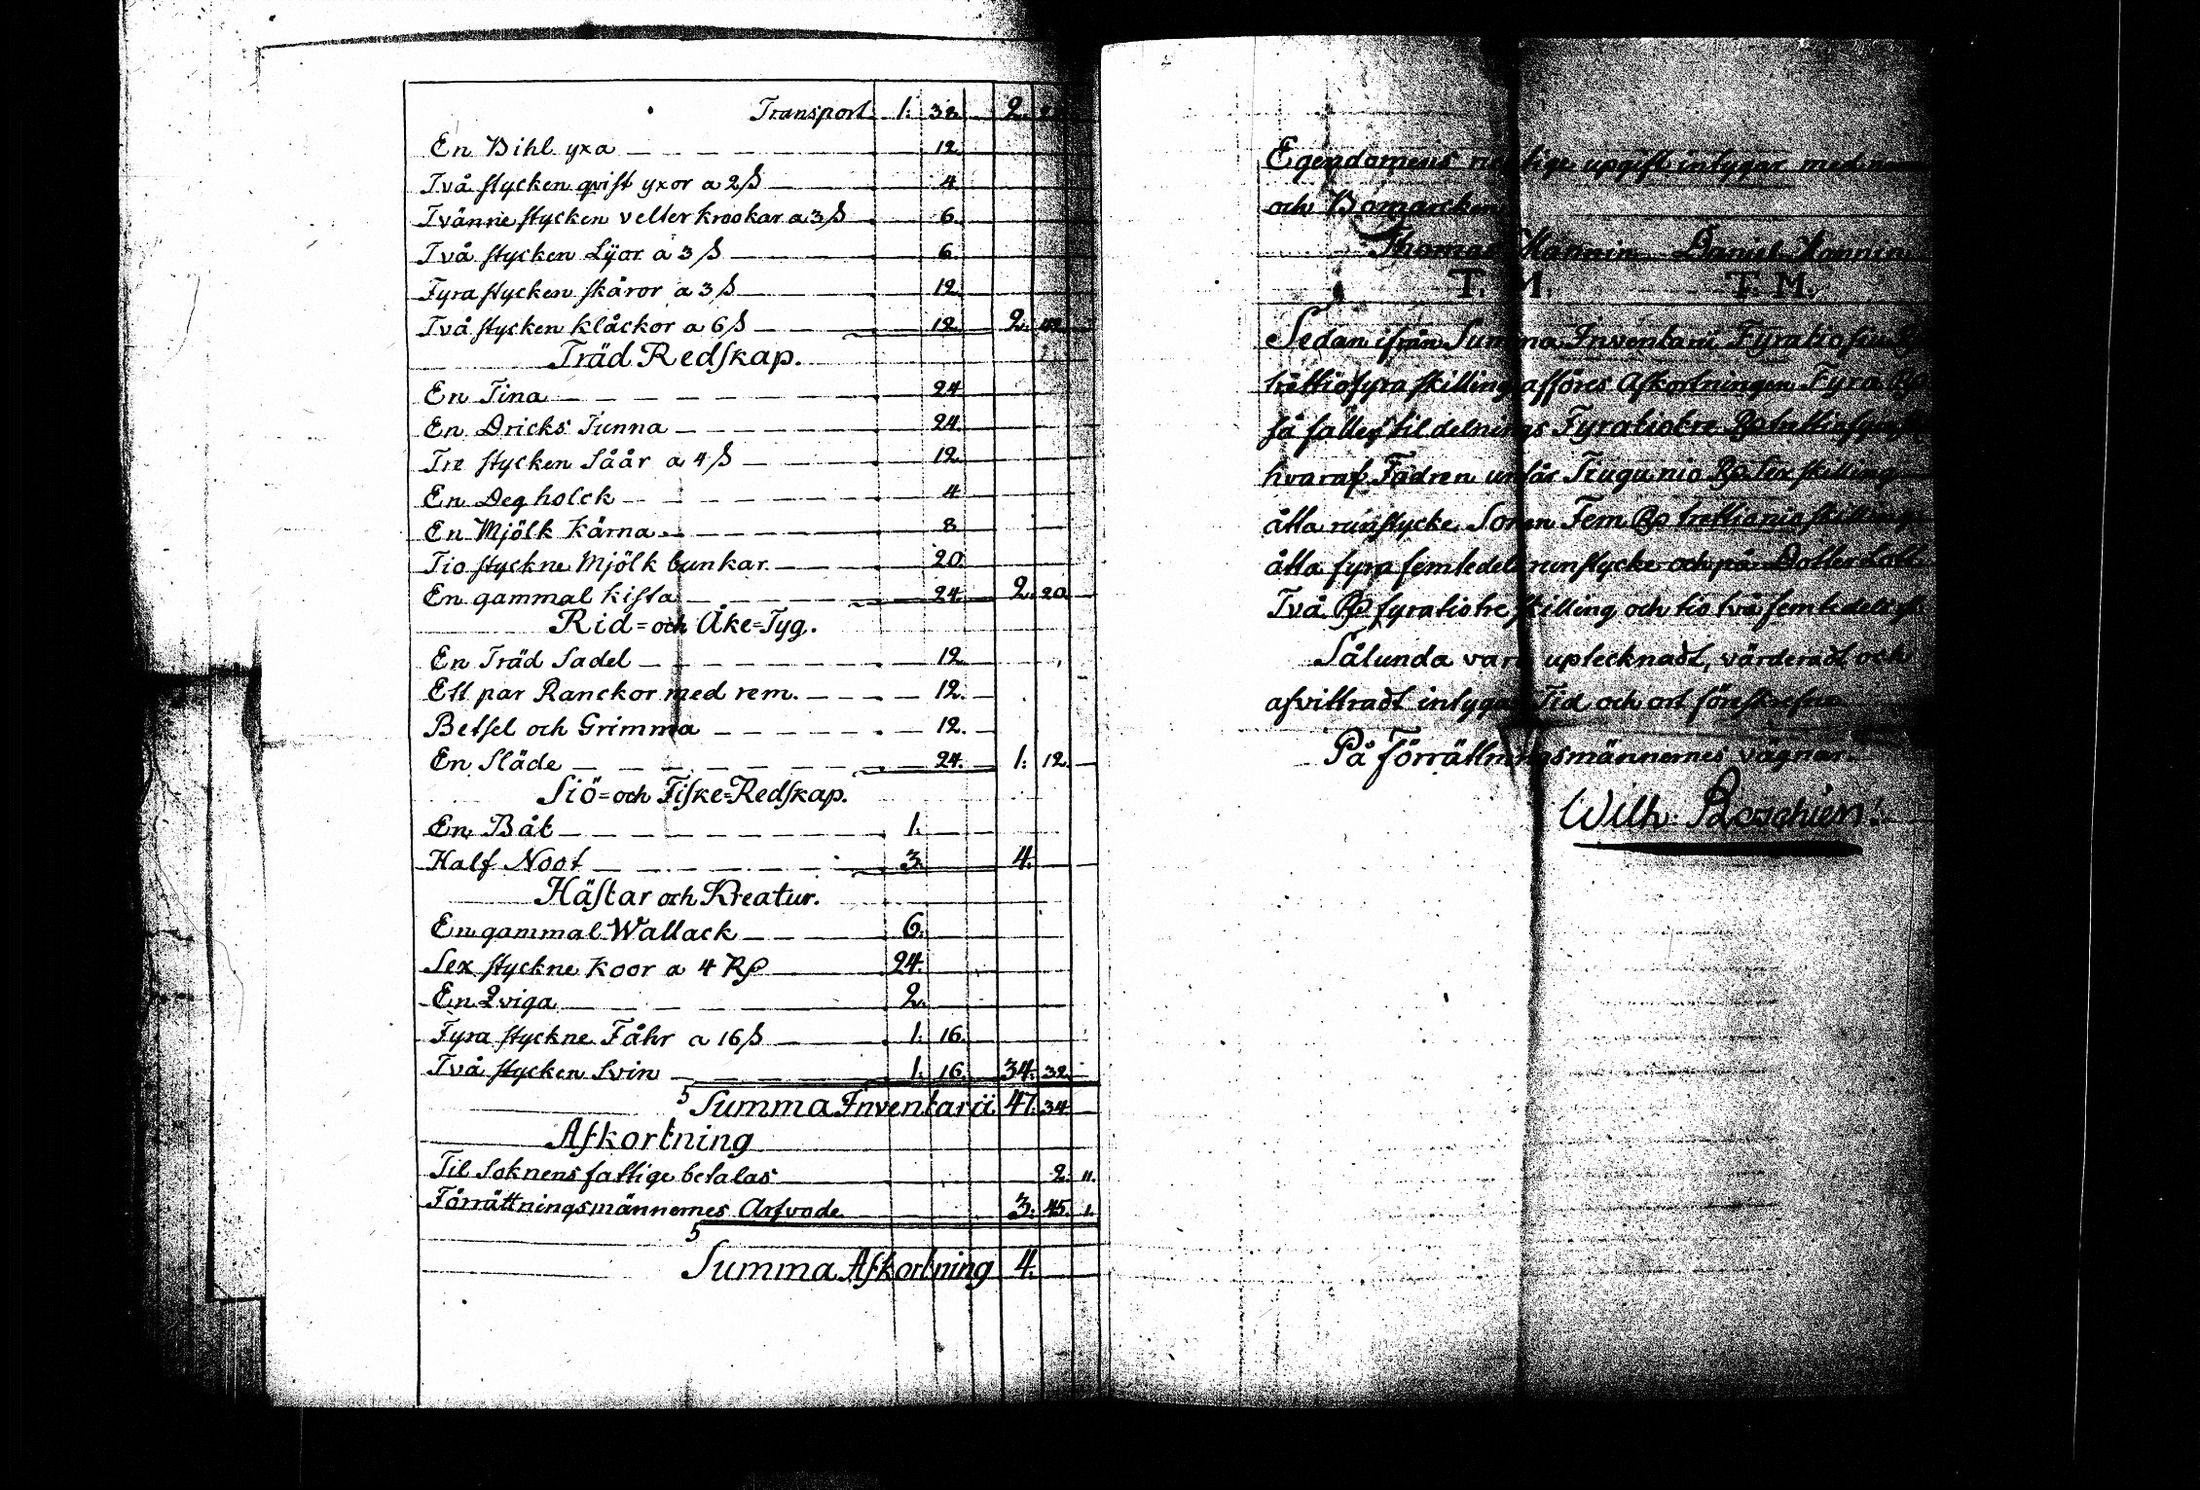 Transport 1. 38. 2.
En Bihl yxa 12.
Två stycken qvist yxor a 2 ß 4
Tvänne stycken velterkrookar a 3 ß 6.
Två stycken Lÿor a 3 ß 6.
Fyra stycken skäror a 3 ß 12.
Två stycken klåckor a 6 ß 12. 2.
Träd Redskap.
En Tina 24.
En Dricks Tunna 24.
Tre stycken Såår a 4 ß 12.
En Deg holck 4
En Mjölk Kärna 8
Tio styckne Mjölk bunkar 20.
En gammal kista 24. 2. 20.
Rid= och Åke=Tyg.
En Träd Sadel 12.
Ett par Ranckor med rem. 12.
Betsel och Grimma 12.
En Släde 24. 1. 12.
Siö= och Fiske=Redskap.
En Båt 1.
Half Noot 3. 4.
Hästar och Kreatur.
En gammal Wallack 6.
Sex styckne Koor a 4 Rp 24.
En Qviga 2.
Fyra styckne Fåhr a 16 ß 1. 16.
Två stycken Svin 1. 16. 34. 32.
Summa Inventarii 47. 34
Afkortning
Til Soknens fattige betalas 2. 11.
Förrättningsmännernes Arfvode 3. 45. 1.
Summa Afkortning 4.
Egendomens upgift intygar med
och Bomärcken
Thomas Mannin Daniel Mannin
T. M. T. M.
Sedan ifrån Summa Inventarii Fyratiosju Rp
trettiofyra skilling afföres Afkortningen Fyra Rp
så faller til delnings Fyratiotre Rp trettiofyra
hvaraf Fadren undfår Tjugunio Rp Sex skilling
åtta runstycke Sonen Fem Rp trettionio skilling
åtta fyra femtedels runstycke och på Dotter Lott
Två Rp fyratiotre skilling och tio två femtedels
Sålunda vara uptecknadt, värderadt och
afvittradt intygar Tid och ort föreskrefne
På Förrättningsmännernes vägnar.
Wilh.